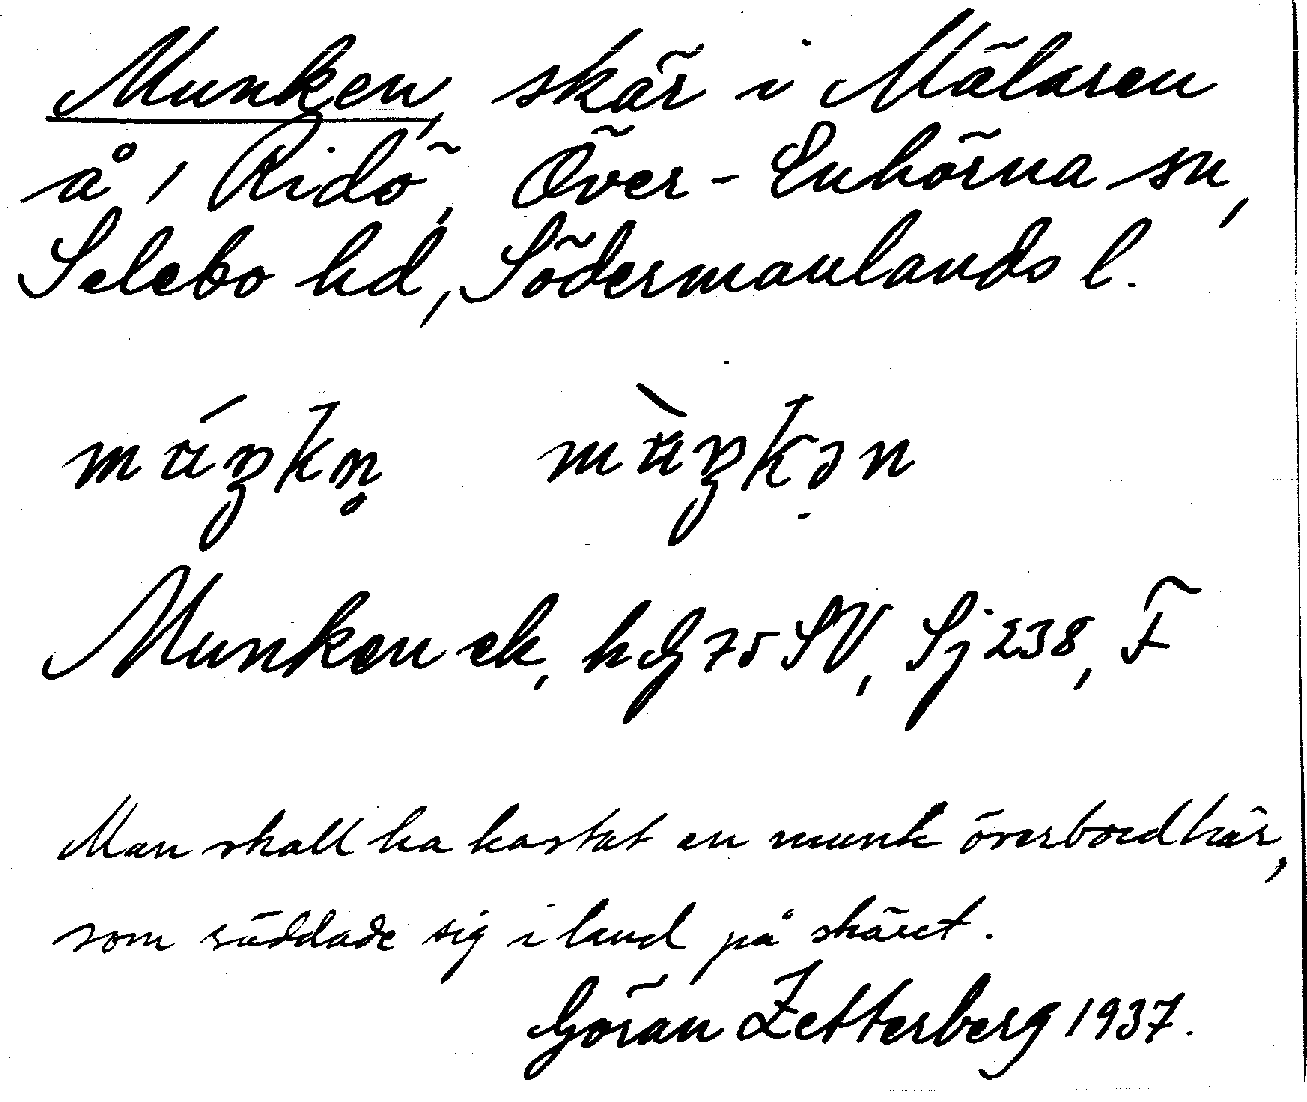 Munken, skär i Mälaren
å 1 Ridö, Över-Enhörna sn,
Selebo hd, Södermanlands l.
Munken ek, h G 75 SV, Sj 238, F
Man skall ha kastat en munk överbord här,
som räddade sig i land på skäret.
Göran Zetterberg 1937.